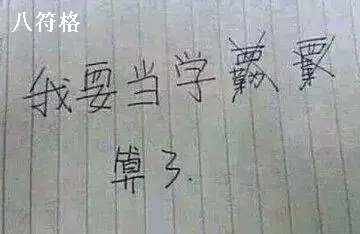 八符格
我要当学
算了.